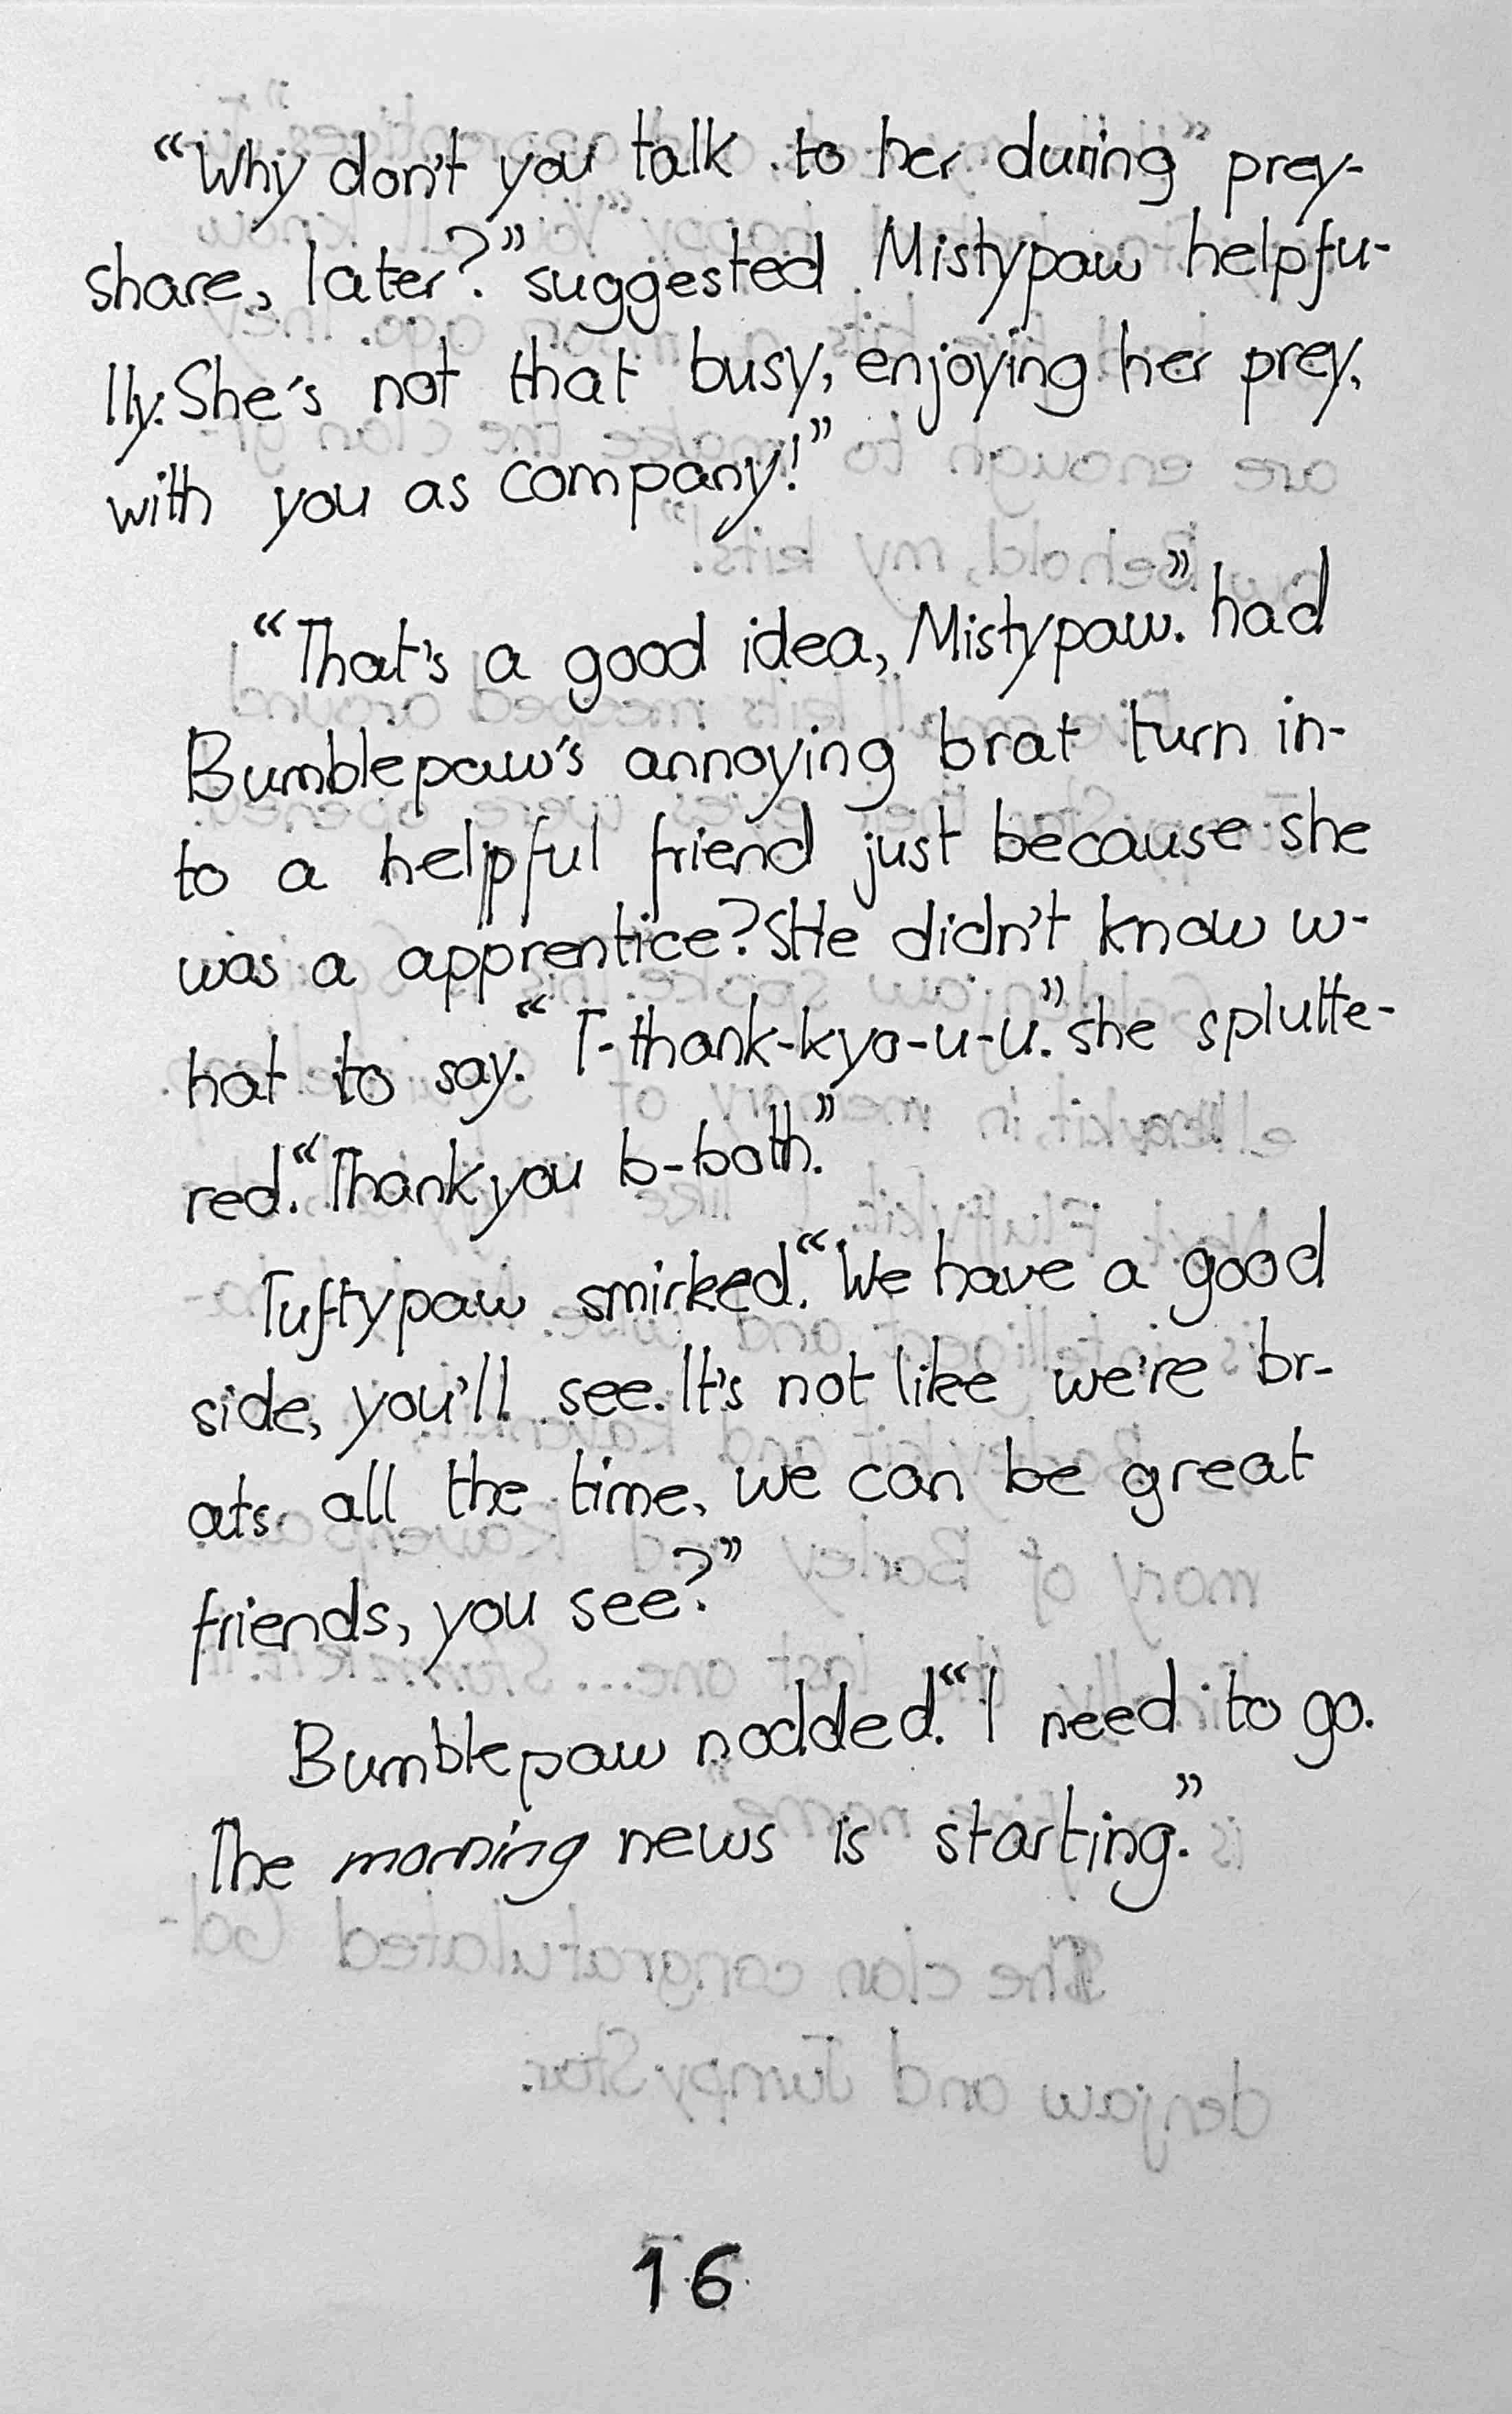 “Why don't you talk to her during prey-
share, later?” suggested Mistypaw helpfu-
lly. She's not that busy, enjoying her prey,
with you as company!”
“That's a good idea, Mistypaw.” had
Bumblepaw's annoying brat turn in-
to a helpful friend just because she
was a apprentice? SHe didn't know w-
hat to say. “T-thank-kyo-u-u.” she splutte-
red. “Thank you b-both.”
Tuftypaw smirked. “We have a good
side, you'll see. It's not like we're br-
ats all the time, we can be great
friends, you see?”
Bumblepaw nodded. “I need to go.
The morning news is starting.”
16